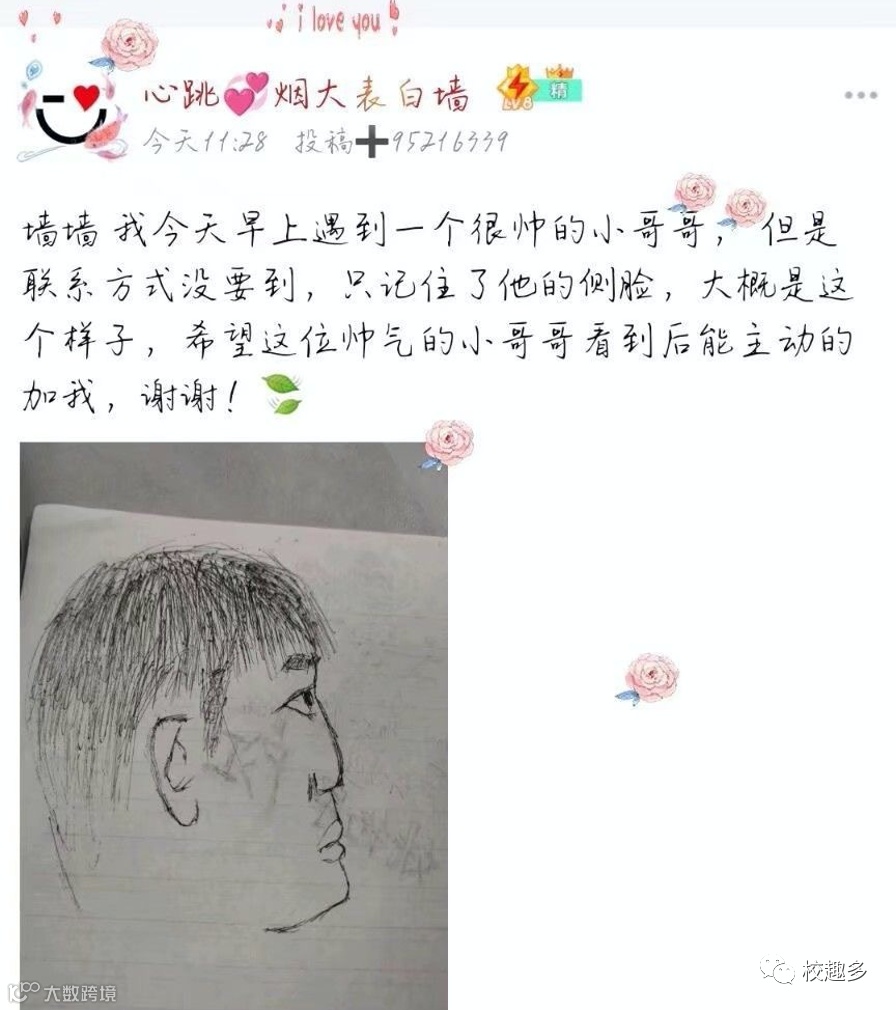 i love you!
心跳💕烟大表白墙 LV8 精
今天11:28 投稿➕95216339
墙墙我今天早上遇到一个很帅的小哥哥，但是
联系方式没要到，只记住了他的侧脸，大概是这
个样子，希望这位帅气的小哥哥看到后能主动的
加我，谢谢！
校趣多
大数跨境